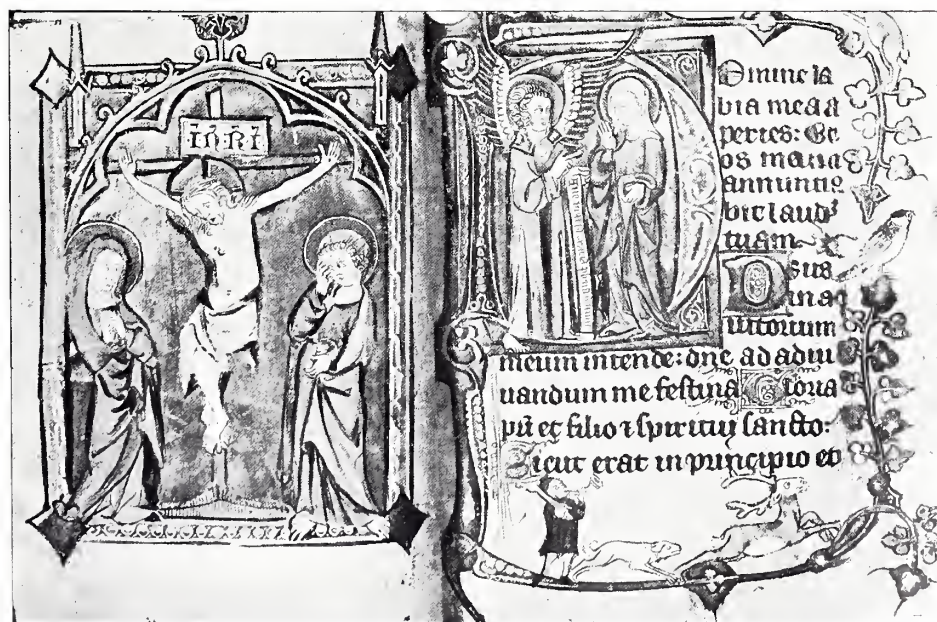 INRI
Domine la
bia mea a
peries: Et
os meum
annuntia
bit laudē
tuam
Deus
in a
iutorium
meum intende: dne ad adiu
uandum me festina Gloria
pri et filio ⁊ spiritui sancto:
Sicut erat in principio et